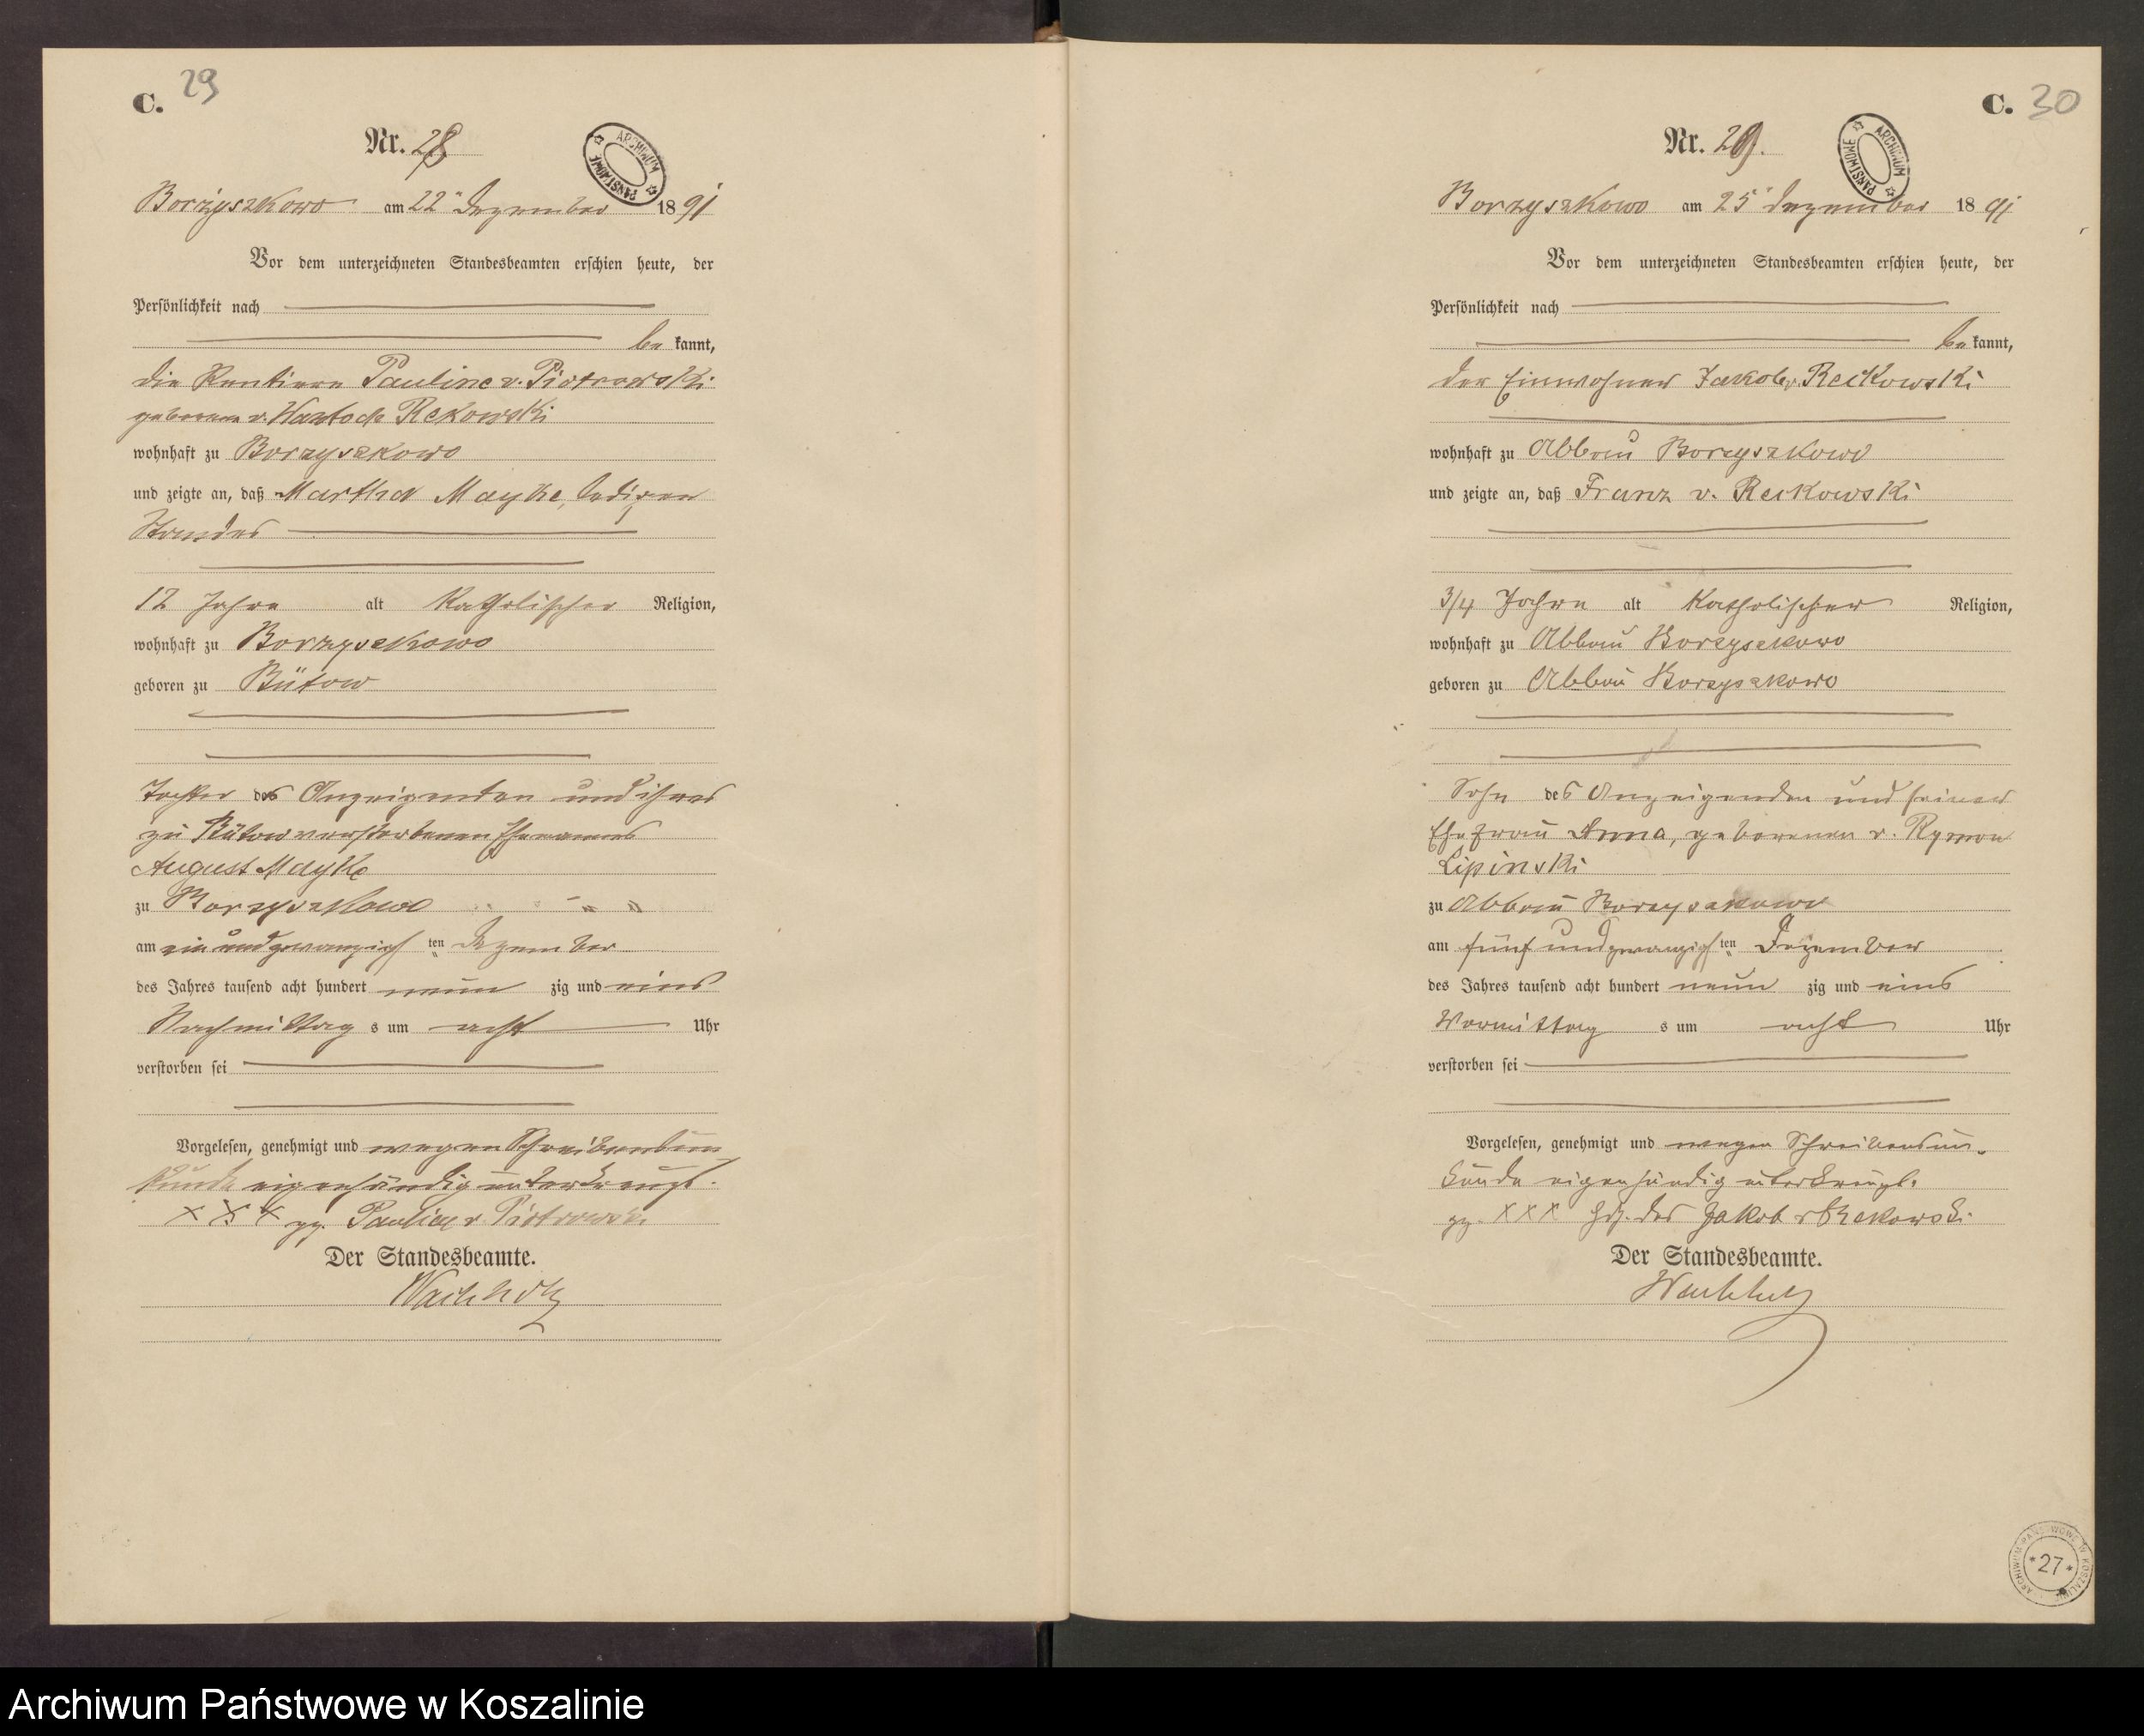 C. 29
Nr. 28
ARCHIWUM PAŃSTWOWE
Borzyszkowo am 22 Dezember 1891
Vor dem unterzeichneten Standesbeamten erschien heute, der
Persönlichkeit nach
bekannt,
die Rentiere Pauline v. Piotrowski
geborene v. Wantoch Rekowski
wohnhaft zu Borzyszkowo
und zeigte an, daß Martha Mayke, ledigen
Standes
12 Jahre alt katholischer Religion,
wohnhaft zu Borzyszkowo
geboren zu Bütow
Tochter des Anzeigenten und ihres
zu Bütow verstorbenen Ehemannes
August Mayke
zu Borzyszkowo
am ein und zwanzigsten Dezember
des Jahres tausend acht hundert neunzig und eins
Nachmittags um acht Uhr
verstorben sei
Vorgelesen, genehmigt und wegen Schreibensun
kunde eigenhändig unterkreuzt.
XXX gz. Pauline v Piotrowski
Der Standesbeamte.
C. 30
Nr. 29.
ARCHIWUM PAŃSTWOWE
Borzyszkowo am 25 Dezember 1891
Vor dem unterzeichneten Standesbeamten erschien heute, der
Persönlichkeit nach
bekannt,
der Einwohner Jakob v. Reikowski
wohnhaft zu Abbau Borzyszkowo
und zeigte an, daß Franz v. Reikowski
3/4 Jahre alt katholischer Religion,
wohnhaft zu Abbau Borzyszkowo
geboren zu Abbau Borzyszkowo
Sohn des Anzeigenden und seiner
Ehefrau Anna, geborenen v. Rymon
Lipinski
zu Abbau Borzyszkowo
am fünf und zwanzigsten Dezember
des Jahres tausend acht hundert neunzig und eins
Vormittags um acht Uhr
verstorben sei
Vorgelesen, genehmigt und wegen Schreibensun-
kunde eigenhändig unterkreuzt.
gz. XXX Hdz. des Jakob v Rekowski
Der Standesbeamte.
ARCHIWUM PAŃSTWOWE W KOSZALINIE *27*
Archiwum Państwowe w Koszalinie